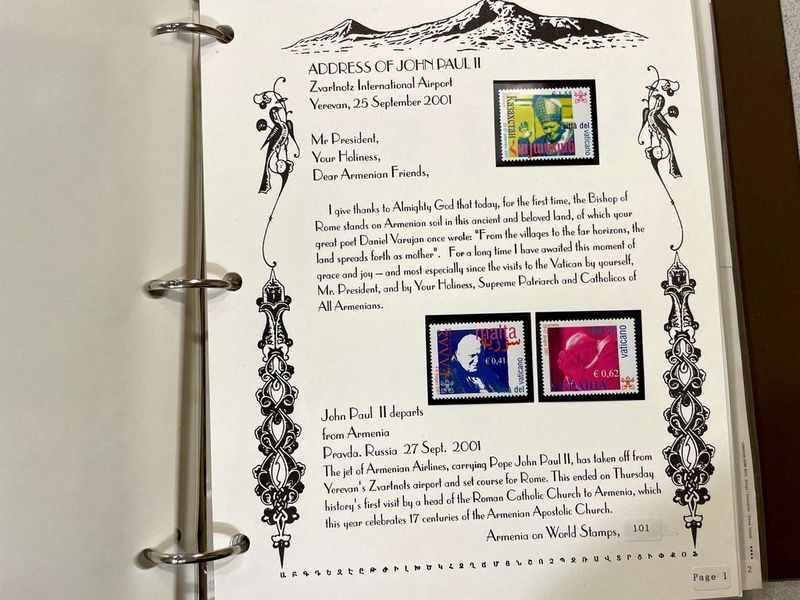 ADDRESS OF JOHN PAUL II
Zvartnotz International Airport
Yerevan, 25 September 2001
Казахстан
città del
vaticano
Mr President,
Your Holiness,
Dear Armenian Friends,
I give thanks to Almighty God that today, for the first time, the Bishop of
Rome stands on Armenian soil in this ancient and beloved land, of which your
great poet Daniel Varujan once wrote: "From the villages to the far horizons, the
land spreads forth as mother". For a long time I have awaited this moment of
grace and joy — and most especially since the visits to the Vatican by yourself,
Mr. President, and by Your Holiness, Supreme Patriarch and Catholicos of
All Armenians.
ΕΛΛΑΣ
malta
سورية
€ 0,41
città del vaticano
città del
vaticano
€ 0,62
УКРАЇНА
John Paul II departs
from Armenia
Pravda. Russia 27 Sept. 2001
The jet of Armenian Airlines, carrying Pope John Paul II, has taken off from
Yerevan's Zvartnots airport and set course for Rome. This ended on Thursday
history's first visit by a head of the Roman Catholic Church to Armenia, which
this year celebrates 17 centuries of the Armenian Apostolic Church.
Armenia on World Stamps, 101
Ա Բ Գ Դ Ե Զ Է Ը Թ Ժ Ի Լ Խ Ծ Կ Հ Ձ Ղ Ճ Մ Յ Ն Շ Ո Չ Պ Ջ Ռ Ս Վ Տ Ր Ց Ւ Փ Ք Օ Ֆ
Page 1
2